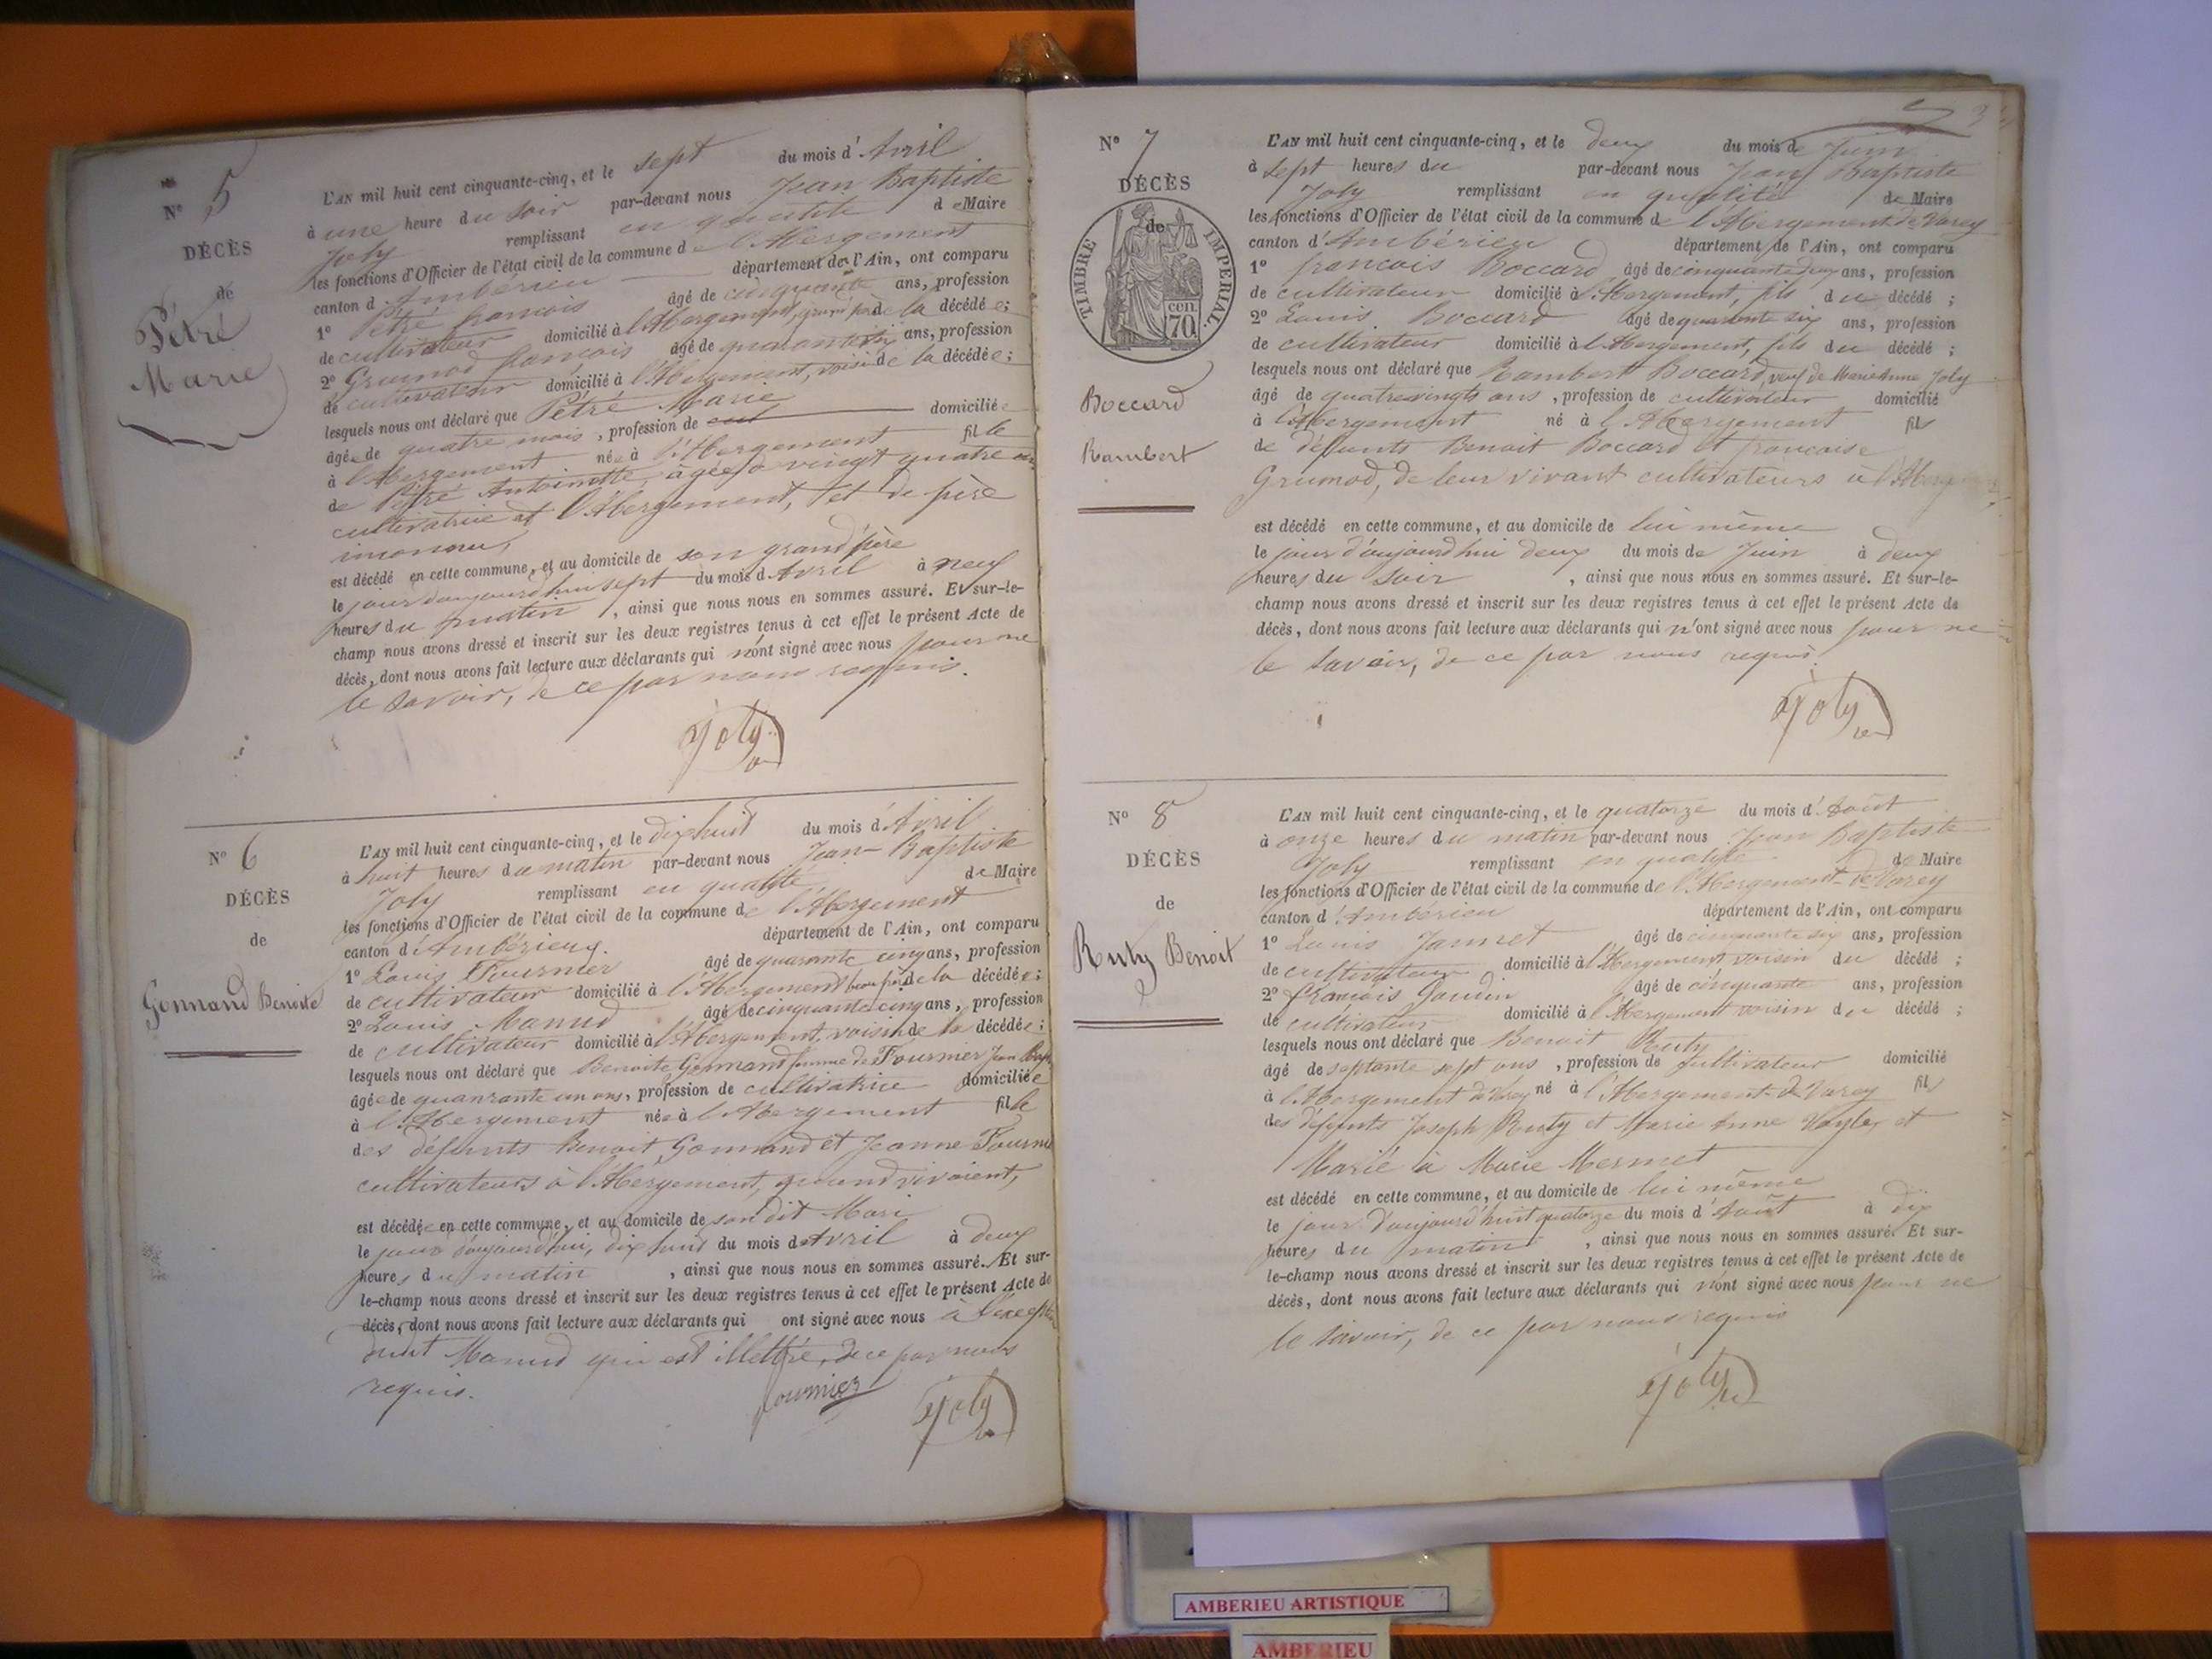 N° 5
DÉCÈS
de
Pétré
Marie
L'AN mil huit cent cinquante-cinq, et le sept du mois d'Avril
à une heure du soir par-devant nous Jean Baptiste
Joly remplissant en qualité de Maire
les fonctions d'Officier de l'état civil de la commune de l'Abergement
canton d'Ambérieu département de l'Ain, ont comparu
1° Pétré francois âgé de cinquante ans, profession
de cultivateur domicilié à l'Abergement, grand père de la décédée;
2° Grumod francois âgé de quarante ans, profession
de cultivateur domicilié à l'Abergement, voisin de la décédée;
lesquels nous ont déclaré que Pétré Marie
âgée de quatre mois, profession de domiciliée
à l'Abergement née à l'Abergement fille
de Pétré Antoinette, âgée de vingt quatre ans
cultivatrice à l'Abergement, et de père
inconnu,
est décédé en cette commune, et au domicile de son grand père
le jour d'aujourd'hui sept du mois d'Avril à neuf
heures du matin, ainsi que nous nous en sommes assuré. Et sur-le-
champ nous avons dressé et inscrit sur les deux registres tenus à cet effet le présent Acte de
décès, dont nous avons fait lecture aux déclarants qui n'ont signé avec nous pour ne
le savoir, de ce par nous requis.
Joly
N° 6
DÉCÈS
de
Gonnand Benoite
L'AN mil huit cent cinquante-cinq, et le dix huit du mois d'Avril
à huit heures du matin par-devant nous Jean-Baptiste
Joly remplissant en qualité de Maire
les fonctions d'Officier de l'état civil de la commune de l'Abergement
canton d'Ambérieux. département de l'Ain, ont comparu
1° Louis Fournier âgé de quarante cinq ans, profession
de cultivateur domicilié à l'Abergement beau frère de la décédée;
2° Louis Manud âgé de cinquante cinq ans, profession
de cultivateur domicilié à l'Abergement, voisin de la décédée;
lesquels nous ont déclaré que Benoite Gonnand femme de Fournier Jean Bapt.
âgée de quanrante un ans, profession de cultivatrice domiciliée
à l'Abergement née à l'Abergement fille
des défunts Benoit Gonnand et Jeanne Fournier
cultivateurs à l'Abergement, quand vivaient,
est décédée en cette commune, et au domicile de son dit Mari
le jour d'aujourd'hui, dix huit du mois d'Avril à deux
heures du matin, ainsi que nous nous en sommes assuré. Et sur-
le-champ nous avons dressé et inscrit sur les deux registres tenus à cet effet le présent Acte de
décès, dont nous avons fait lecture aux déclarants qui ont signé avec nous à l'exception
dudit Manud qui est illettré, de ce par nous
requis.
fournier Joly
N° 7
DÉCÈS
de
TIMBRE IMPERIAL.
cen.
70
Boccard
Rambert
L'AN mil huit cent cinquante-cinq, et le deux du mois de Juin
à sept heures du par-devant nous Jean Baptiste
Joly remplissant en qualité de Maire
les fonctions d'Officier de l'état civil de la commune de l'Abergement de Varey
canton d'Ambérieu département de l'Ain, ont comparu
1° francois Boccard âgé de cinquante deux ans, profession
de cultivateur domicilié à l'Abergement, fils du décédé;
2° Louis Boccard âgé de quarante six ans, profession
de cultivateur domicilié à l'Abergement, fils du décédé;
lesquels nous ont déclaré que Rambert Boccard, veuf de Marie Anne Joly
âgé de quatrevingts ans, profession de cultivateur domicilié
à l'Abergement né à l'Abergement fils
de défunts Benoit Boccard et francoise
Grumod, de leur vivant cultivateurs à
est décédé en cette commune, et au domicile de lui même
le jour d'aujourd'hui deux du mois de Juin à deux
heures du soir, ainsi que nous nous en sommes assuré. Et sur-le-
champ nous avons dressé et inscrit sur les deux registres tenus à cet effet le présent Acte de
décès, dont nous avons fait lecture aux déclarants qui n'ont signé avec nous pour ne
le savoir, de ce par nous requis.
Joly
N° 8
DÉCÈS
de
Ruty Benoit
L'AN mil huit cent cinquante-cinq, et le quatorze du mois d'Août
à onze heures du matin par-devant nous Jean Baptiste
Joly remplissant en qualité de Maire
les fonctions d'Officier de l'état civil de la commune de l'Abergement-de Varey
canton d'Ambérieu département de l'Ain, ont comparu
1° Louis Jannet âgé de cinquante six ans, profession
de cultivateur domicilié à l'Abergement voisin du décédé;
2° francois Gaudin âgé de cinquante ans, profession
de cultivateur domicilié à l'Abergement voisin du décédé;
lesquels nous ont déclaré que Benoit Ruty
âgé de septante sept ans, profession de cultivateur domicilié
à l'Abergement de Varey né à l'Abergement-de Varey fils
des défunts Joseph Ruty et Marie Anne et
Marié à Marie Mermet
est décédé en cette commune, et au domicile de lui même
le jour d'aujourd'huit quatorze du mois d'Août à dix
heures du matin, ainsi que nous nous en sommes assuré. Et sur-
le-champ nous avons dressé et inscrit sur les deux registres tenus à cet effet le présent Acte de
décès, dont nous avons fait lecture aux déclarants qui n'ont signé avec nous pour ne
le savoir, de ce par nous requis
Joly
AMBERIEU ARTISTIQUE
AMBERIEU